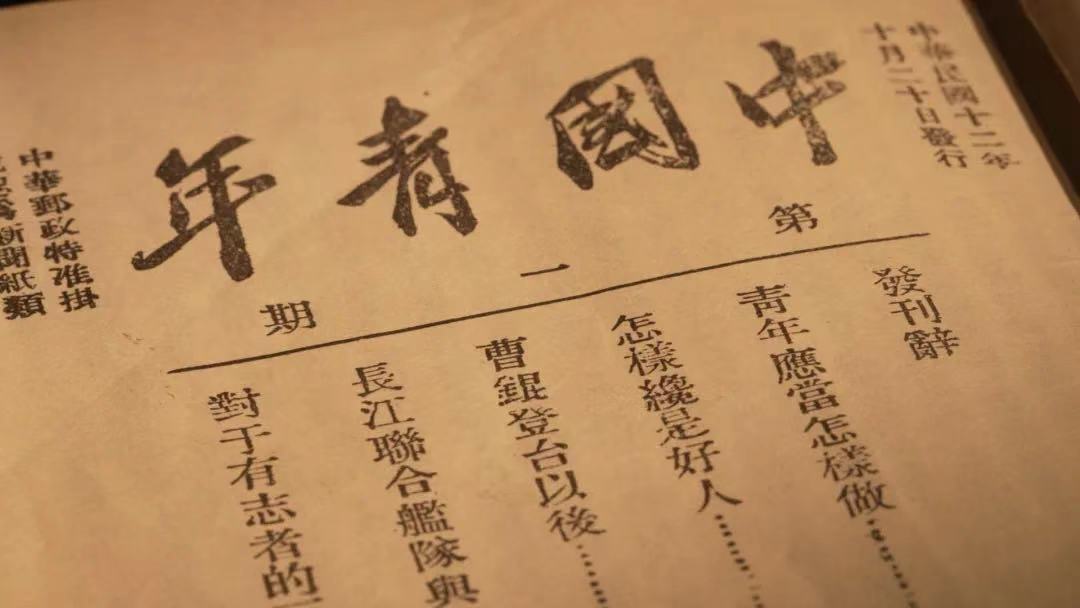 中華民國十二年
十月二十日發行
中國青年
第一期
發刊辭
青年應當怎樣做……
怎樣纔是好人……
曹錕登台以後……
長江聯合艦隊與
對于有志者的
中華郵政特准掛
號認爲新聞紙類